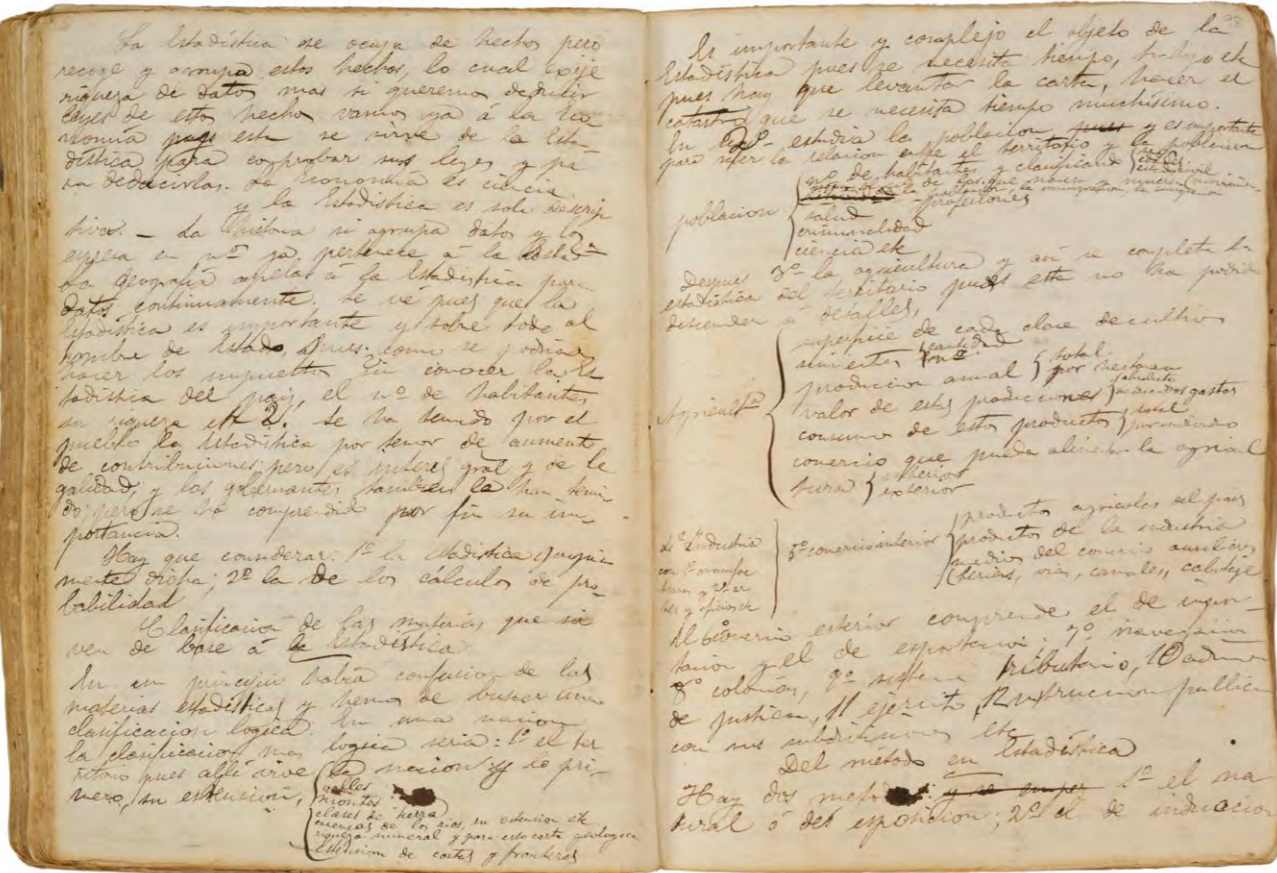 La Estadística se ocupa de hechos pero
recoge y agrupa estos hechos, lo cual exije
riqueza de datos mas si queremos deducir
leyes de estos hechos vamos ya á la Eco
nomía pues esta se sirve de la Esta-
dística para comprobar sus leyes y pa
ra deducirlas. La Economía es ciencia
y la Estadística es solo descrip
tiva. - La Historia si agrupa datos y los
espresa en nos ya pertenece á la Estadca
La geografía á la Estadística para
datos continuamente. Se vé pues que la
Estadística es importante y sobre todo al
hombre de Estado, pues como se podrian
hacer los impuestos sin conocer la Es
tadistica del pais, el no de habitantes
su riqueza Se ha temido por el
pueblo la Estadística por temor de aumento
de contribuciones pero es interes gral y de le
galidad, y los gobernantes tambien la han temi
do; pero se ha comprendido por fin su im-
portancia.
Hay que considerar: 1º la estadistica propia
mente dicha; 2º la de los cálculos de pro
babilidad
Clasificacion de las materias que sir
ven de base á la Estadística
En un principio habia confusion de las
materias estadísticas y hemos de buscar una
clasificacion logica. En una nacion
la clasificacion mas logica seria: 1º el ter
ritorio pues allí vive la nacion y lo pri-
mero, su estension,
valles
montes
clases de tierra
cuencas de los rios, su estension etc
riqueza mineral y para esto carta geologica
estension de costas y fronteras
Es importante y complejo el objeto de la
Estadística pues se necesita tiempo, trabajo etc
pues hay que levantar la carta, hacer el
catastro que se necesita tiempo muchísimo.
En 2º estudia la poblacion pues y es importante
para saber la relacion entre el territorio y la poblacion
poblacion
no de habitantes y clasificando
civil
de los que nacen y mueren
profesiones
salud
criminalidad
ciencia etc
Despues 3º la agricultura y asi se completa la
estadistica del territorio pues este no ha podido
descender á detalles,
Agricultra
superficie de cada clase de cultivo
simientes cantidad
produccion anual total
por hectarea
valor de estas producciones absoluto
deducidos gastos
consumo de estos productos total
por individuo
comercio que pueda alimentar la agricul
tura interior
exterior
4º industria
5º comercio interior
productos agricolas del pais
productos de la industria
medios del comercio auxiliares
ferias, vias, canales, cabotaje
El 6º comercio esterior comprende el de impor-
tacion y el de esportacion: 7º navegacion
8º colonias, 9º sistema tributario, 10 admon
de justicia, 11 ejército, 12 instruccion publica
con sus subdivisiones etc
Del método en Estadística
Hay dos y se empez 1º el na
tural ó de esposicion; 2º el de induccion